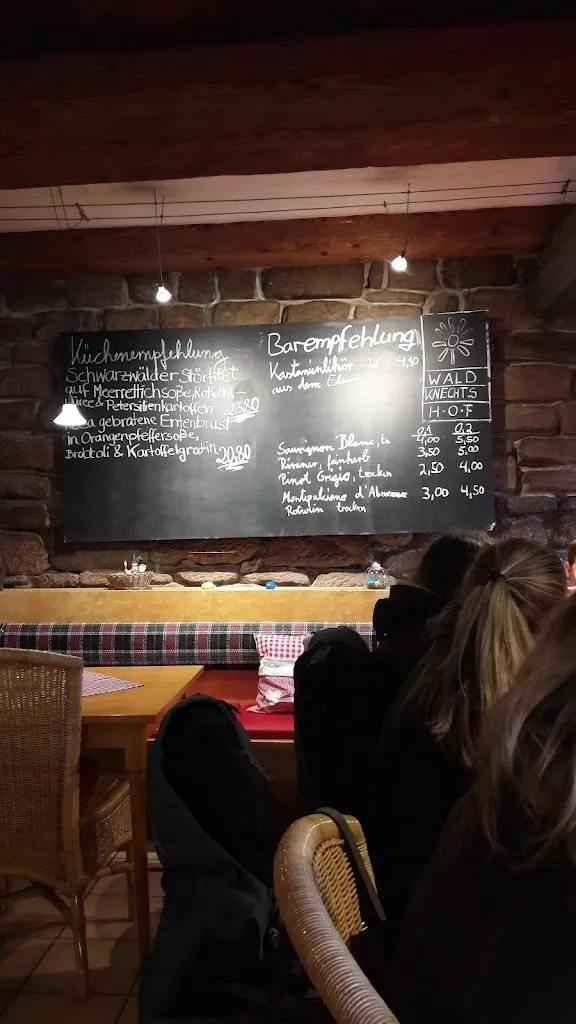 Küchenempfehlung
Schwarzwälder Störfilet
auf Meerrettichsoße, Rotkohl-
püree & Petersilienkartoffeln 23,80
gebratene Entenbrust
in Orangenpfeffersoße,
Brokkoli & Kartoffelgratin 20,80
Barempfehlung
Kastanienlikör 2cl 4,90
aus dem Elsass
WALD
KNECHTS
H·O·F
0,1 0,2
Sauvignon Blanc, tr. 4,00 5,50
Rivaner, feinherb 3,50 5,00
Pinot Grigio, trocken 2,50 4,00
Montepulciano d'Abruzzo 3,00 4,50
Rotwein trocken